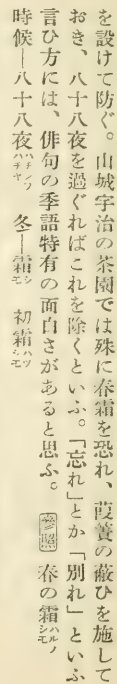 を設けて防ぐ。山城宇治の茶園では殊に春霜を恐れ、葭簀の蔽ひを施して
おき、八十八夜を過ぐればこれを除くといふ。「忘れ」とか「別れ」といふ
言ひ方には、俳句の季語特有の面白さがあると思ふ。 參照 春の霜ハルノシモ
時候―八十八夜ハチジフハチヤ 冬―霜シモ 初霜ハツシモ